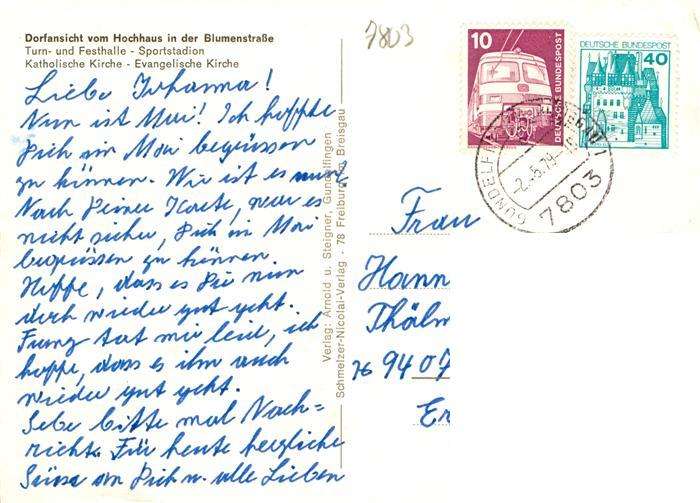 Dorfansicht vom Hochhaus in der Blumenstraße
Turn- und Festhalle - Sportstadion
Katholische Kirche - Evangelische Kirche
Liebe Johanna!
Nun ist Mai! Ich hoffte
Dich im Mai begrüssen
zu können. Wie ist es nun?
Nach Deiner Karte, war es
nicht sicher, Dich im Mai
begrüssen zu können.
Hoffe, dass es Dir nun
doch wieder gut geht.
tat mir leid, ich
hoffe, dass es ihm auch
wieder gut geht.
Gebe bitte mal Nach=
richt. Für heute herzliche
Grüsse an Dich u. alle Lieben
Verlag: Arnold u. Steigner, Gundelfingen
Schmelzer-Nicolai-Verlag · 78 Freiburg im Breisgau
7803
10
DEUTSCHE BUNDESPOST
DEUTSCHE BUNDESPOST
40
7803
Frau
Hann
Thälm
9407
Er